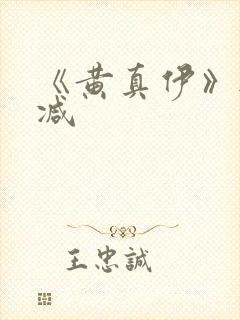 《黄真伊》
减
王忠誠